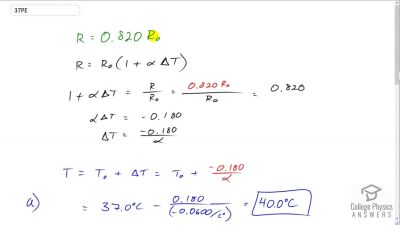 37PE
R = 0.820 R₀
R = R₀ (1 + α ΔT)
1 + α ΔT = R/R₀ = 0.820 R₀/R₀ = 0.820
α ΔT = -0.180
ΔT = -0.180/α
T = T₀ + ΔT = T₀ + -0.180/α
a) = 37.0°C - 0.180/(-0.0600/C°) = 40.0°C
College Physics
ANSWERS